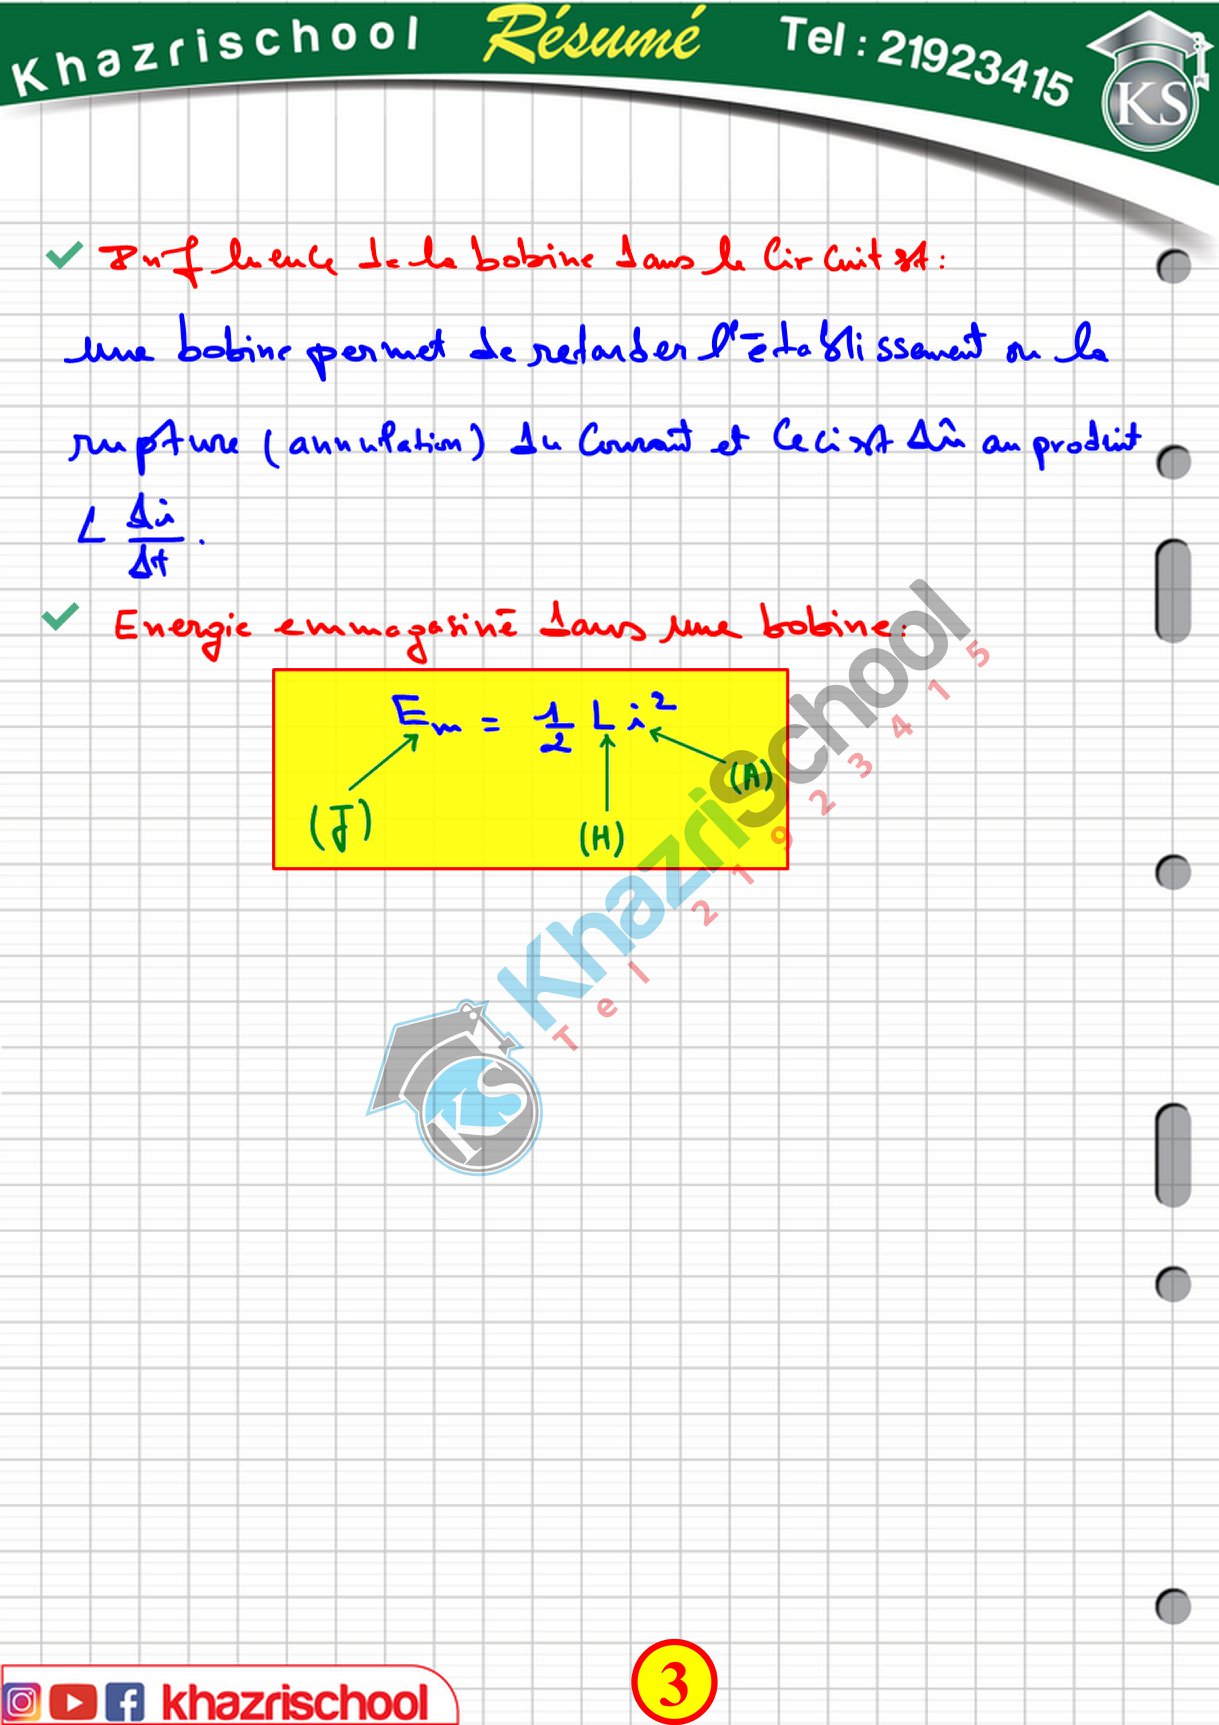 Khazrischool Résumé Tel : 21923415
KS
Influence de la bobine dans le circuit est :
une bobine permet de retarder l'établissement ou la
rupture (annulation) du courant et ceci est dû au produit
L Δi/Δt .
Energie emmagasiné dans une bobine :
Em = 1/2 L i²
(A)
(J) (H)
KhazriSchool
Tel 21923415
KS
khazrischool 3